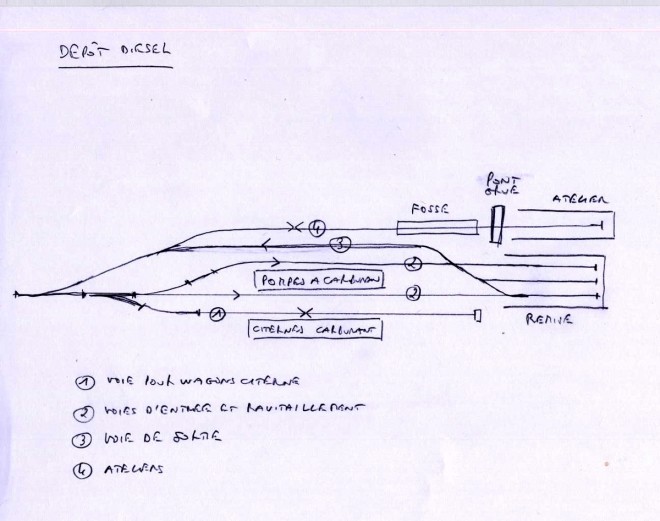 DEPÔT DIESEL
PONT
GRUE
ATELIER
FOSSE
4
3
2
POMPES A CARBURANT
2
REMISE
1
CITERNES CARBURANT
1 VOIE POUR WAGONS CITERNE
2 VOIES D'ENTREE ET RAVITAILLEMENT
3 VOIE DE SORTIE
4 ATELIERS